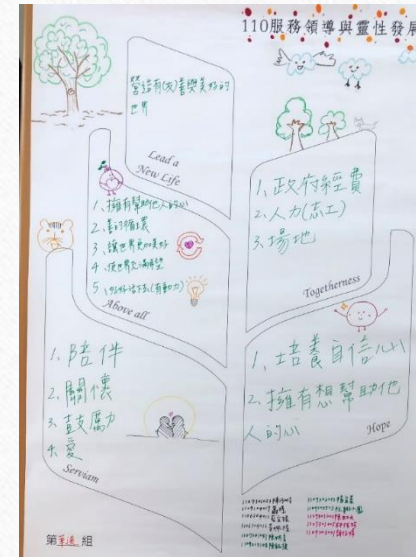 110服務領導與靈性發展
營造有(友)善與美好的
世界
Lead a
New Life
1、擁有幫助他人的心
2、善的循環
3、讓世界更加美好
4、使世界充滿希望
5、好好活下去(有動力)
Above all
1、政府經費
2、人力(志工)
3、場地
Togetherness
1、陪伴
2、關懷
3、鼓勵
4、愛
Serviam
1、培養自信心
2、擁有想幫助他
人的心
Hope
第 組